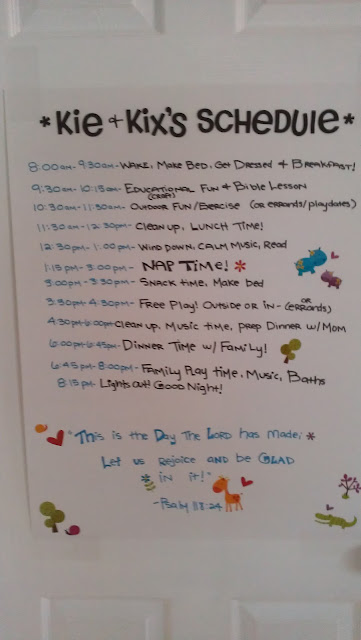 *Kie + Kix's Schedule*
8:00am-9:30am- Wake, Make Bed, Get Dressed + Breakfast!
9:30am-10:15am- Educational Fun & Bible Lesson
(craft)
10:30am-11:30am- Outdoor Fun/Exercise (or errands/playdates)
11:30am-12:30pm- Clean up, LUNCH TIME!
12:30pm-1:00pm- Wind Down, Calm Music, Read
1:15pm-3:00pm- NAP TIME! *
3:00pm-3:30pm- Snack time, Make bed
3:30pm-4:30pm- Free Play! Outside or in- (or errands)
4:30pm-6:00pm- Clean up, Music time, prep Dinner w/Mom
6:00pm-6:45pm- Dinner Time w/ Family!
6:45pm-8:00pm- Family Play time, Music, Baths
8:15pm- Lights out! Good Night!
"This is the Day The Lord has made; *
Let us rejoice and be GLAD
* in it!"
-Psalm 118:24